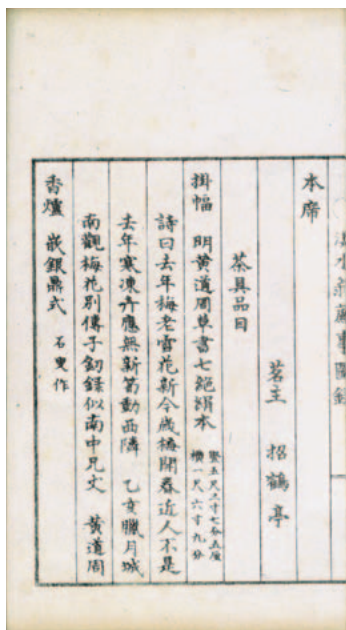 本席
茗主 招鶴亭
茶具品目
掛幅 明黄道周草書七絶絹本 竪五尺三寸七分五厘 横一尺六寸九分
詩曰去年梅老雪花新今歳梅開春近人不是
去年寒凍六應無新笋動西隣 乙亥臘月城
南觀梅花別傳子釰録似南中兄文 黄道周
香爐 嵌銀鼎式 石叟作